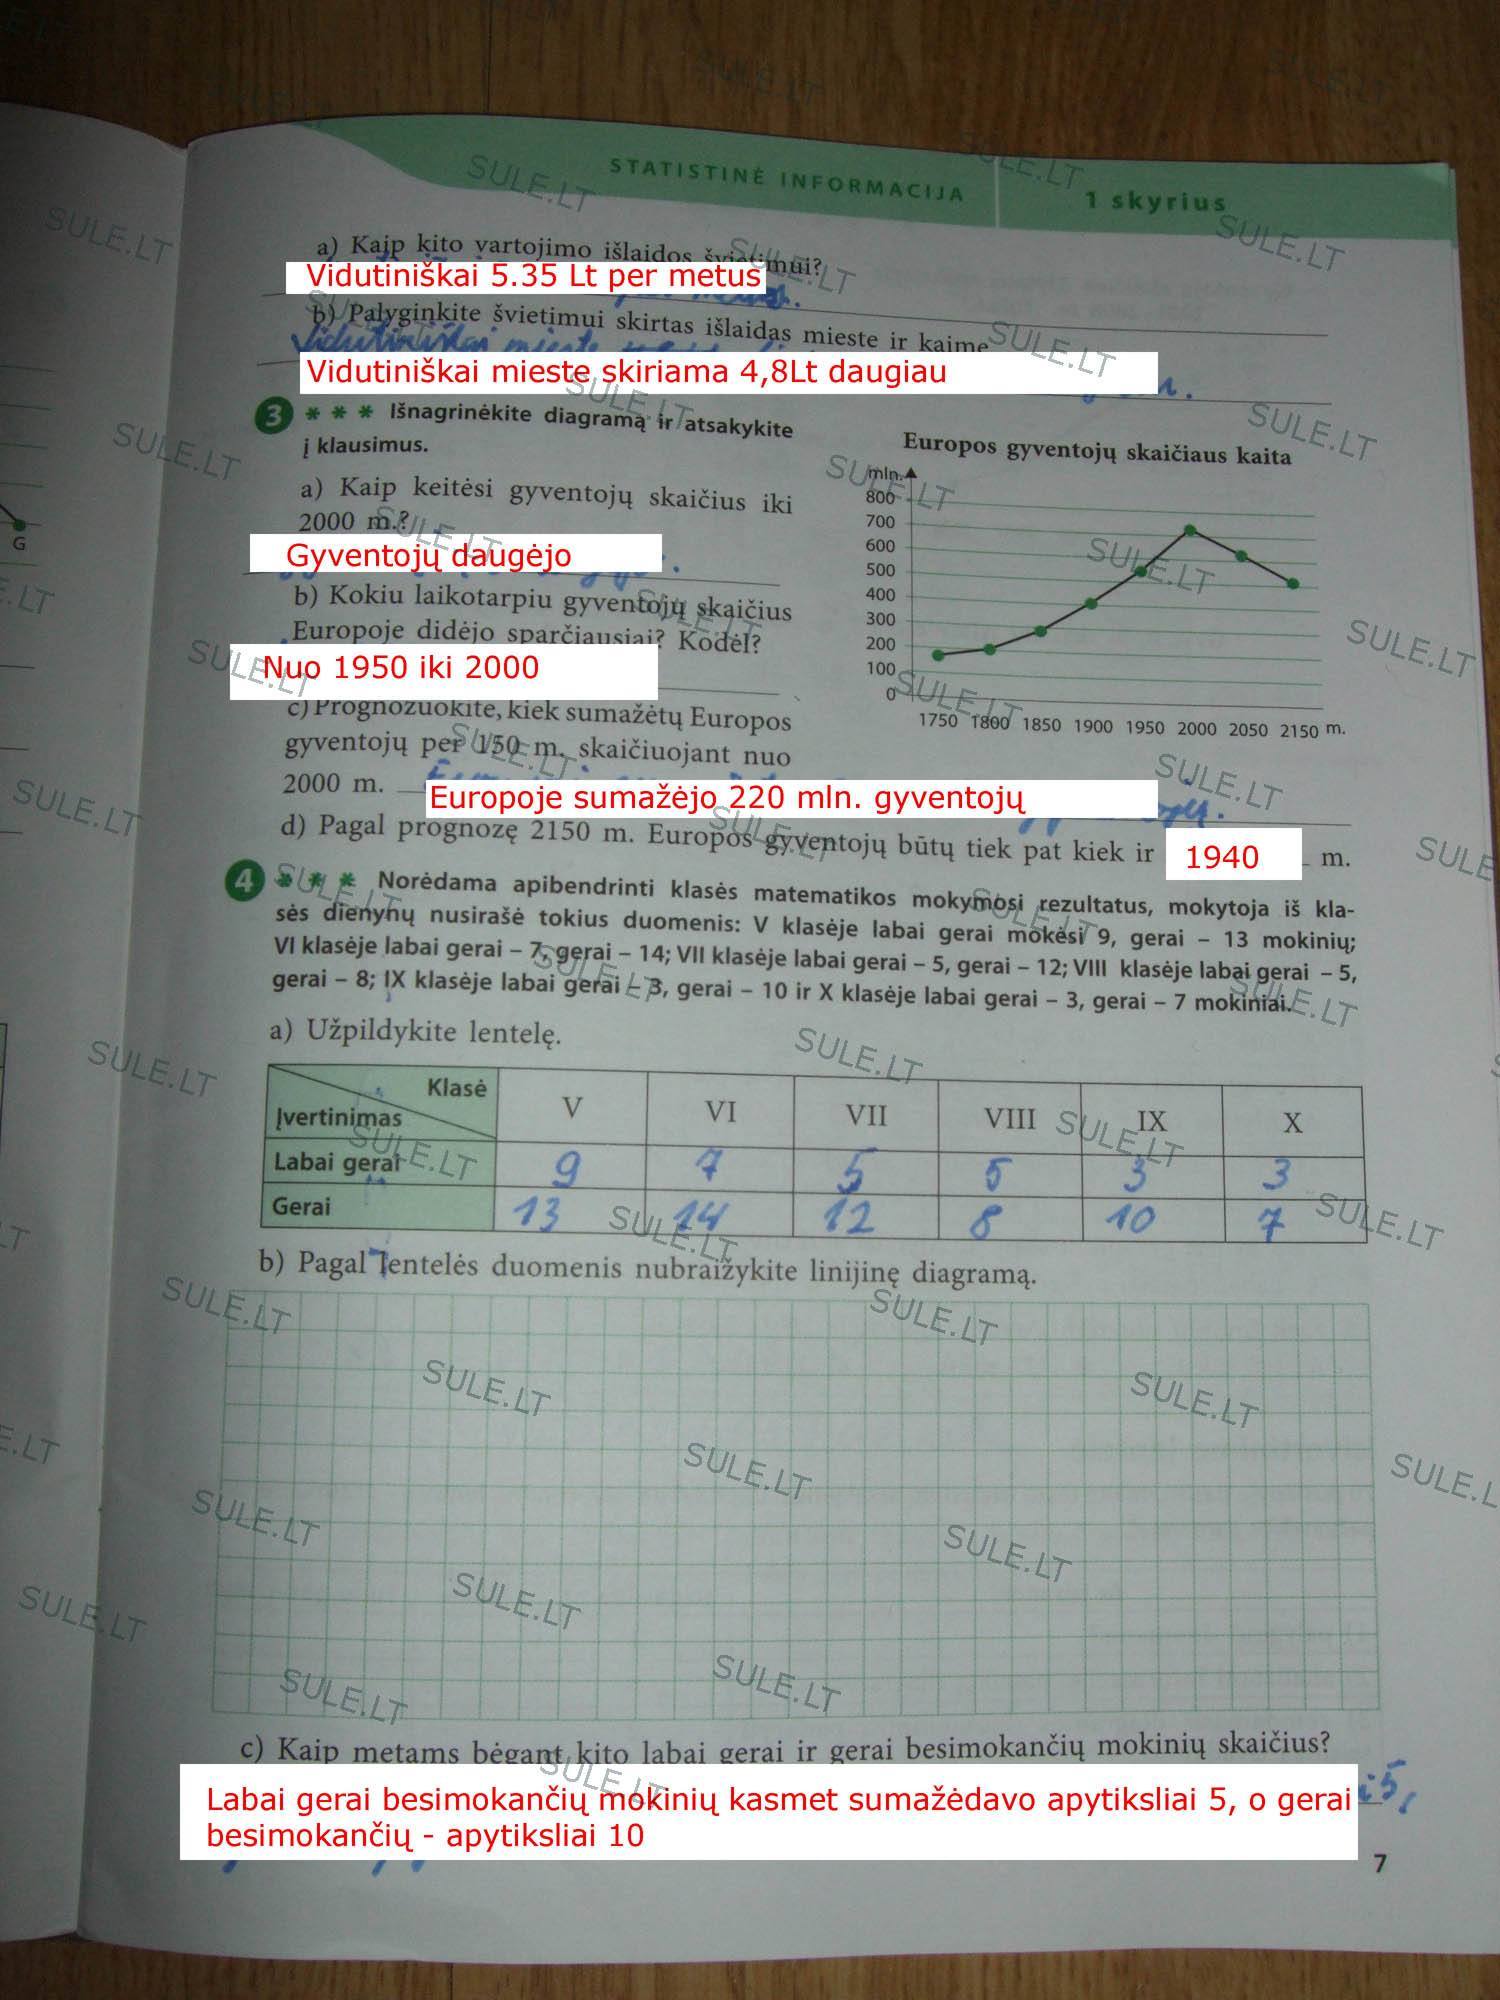 STATISTINĖ INFORMACIJA
1 skyrius
a) Kaip kito vartojimo išlaidos švietimui?
Vidutiniškai 5.35 Lt per metus
b) Palyginkite švietimui skirtas išlaidas mieste ir kaime
Vidutiniškai mieste skiriama 4,8Lt daugiau
3 *** Išnagrinėkite diagramą ir atsakykite
į klausimus.
a) Kaip keitėsi gyventojų skaičius iki
2000 m.?
Gyventojų daugėjo
b) Kokiu laikotarpiu gyventojų skaičius
Europoje didėjo sparčiausiai? Kodėl?
Nuo 1950 iki 2000
c) Prognozuokite, kiek sumažėtų Europos
gyventojų per 150 m. skaičiuojant nuo
2000 m.
Europoje sumažėjo 220 mln. gyventojų
Europos gyventojų skaičiaus kaita
mln.
800
700
600
500
400
300
200
100
0
1750 1800 1850 1900 1950 2000 2050 2150 m.
d) Pagal prognozę 2150 m. Europos gyventojų būtų tiek pat kiek ir 1940 m.
4 *** Norėdama apibendrinti klasės matematikos mokymosi rezultatus, mokytoja iš kla-
sės dienynų nusirašė tokius duomenis: V klasėje labai gerai mokėsi 9, gerai – 13 mokinių;
VI klasėje labai gerai – 7, gerai – 14; VII klasėje labai gerai – 5, gerai – 12; VIII klasėje labai gerai – 5,
gerai – 8; IX klasėje labai gerai – 3, gerai – 10 ir X klasėje labai gerai – 3, gerai – 7 mokiniai.
a) Užpildykite lentelę.
Klasė
Įvertinimas
V VI VII VIII IX X
Labai gerai 9 7 5 5 3 3
Gerai 13 14 12 8 10 7
b) Pagal lentelės duomenis nubraižykite linijinę diagramą.
c) Kaip metams bėgant kito labai gerai ir gerai besimokančių mokinių skaičius?
Labai gerai besimokančių mokinių kasmet sumažėdavo apytiksliai 5, o gerai
besimokančių - apytiksliai 10
7
G
SULE.LT